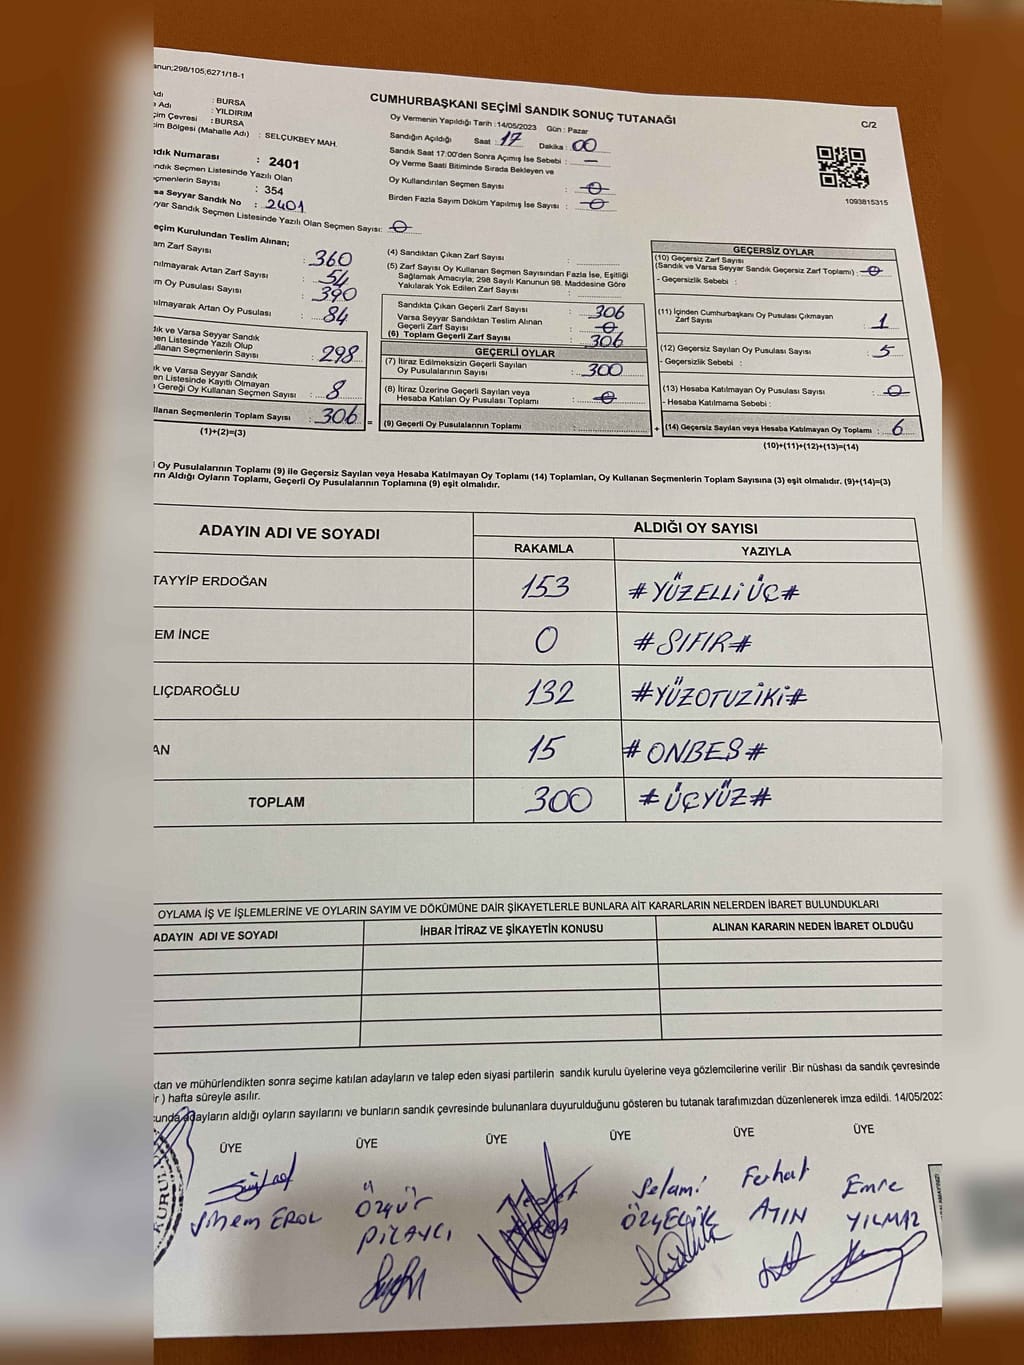 anun;298/105;6271/18-1
CUMHURBAŞKANI SEÇİMİ SANDIK SONUÇ TUTANAĞI
C/2
Adı : BURSA
e Adı : YILDIRIM
çim Çevresi : BURSA
çim Bölgesi (Mahalle Adı) : SELÇUKBEY MAH.
ndık Numarası : 2401
ndık Seçmen Listesinde Yazılı Olan
çmenlerin Sayısı : 354
sa Seyyar Sandık No : 2401
yyar Sandık Seçmen Listesinde Yazılı Olan Seçmen Sayısı: 0
Oy Vermenin Yapıldığı Tarih :14/05/2023 Gün : Pazar
Sandığın Açıldığı Saat : 17 Dakika : 00
Sandık Saat 17:00'den Sonra Açımış İse Sebebi : —
Oy Verme Saati Bitiminde Sırada Bekleyen ve
Oy Kullandırılan Seçmen Sayısı : 0
Birden Fazla Sayım Döküm Yapılmış İse Sayısı : 0
1093815315
eçim Kurulundan Teslim Alınan;
am Zarf Sayısı : 360
nılmayarak Artan Zarf Sayısı : 54
m Oy Pusulası Sayısı : 390
nılmayarak Artan Oy Pusulası : 84
dık ve Varsa Seyyar Sandık
men Listesinde Yazılı Olup
ullanan Seçmenlerin Sayısı : 298
ık ve Varsa Seyyar Sandık
en Listesinde Kayıtlı Olmayan
ı Gereği Oy Kullanan Seçmen Sayısı : 8
llanan Seçmenlerin Toplam Sayısı : 306 =
(1)+(2)=(3)
(4) Sandıktan Çıkan Zarf Sayısı :
(5) Zarf Sayısı Oy Kullanan Seçmen Sayısından Fazla İse, Eşitliği
Sağlamak Amacıyla; 298 Sayılı Kanunun 98. Maddesine Göre
Yakılarak Yok Edilen Zarf Sayısı :
Sandıkta Çıkan Geçerli Zarf Sayısı : 306
Varsa Seyyar Sandıktan Teslim Alınan
Geçerli Zarf Sayısı : 0
(6) Toplam Geçerli Zarf Sayısı : 306
GEÇERLİ OYLAR
(7) İtiraz Edilmeksizin Geçerli Sayılan
Oy Pusulalarının Sayısı : 300
(8) İtiraz Üzerine Geçerli Sayılan veya
Hesaba Katılan Oy Pusulası Toplamı : 0
(9) Geçerli Oy Pusulalarının Toplamı : +
GEÇERSİZ OYLAR
(10) Geçersiz Zarf Sayısı
(Sandık ve Varsa Seyyar Sandık Geçersiz Zarf Toplamı) : 0
- Geçersizlik Sebebi :
(11) İçinden Cumhurbaşkanı Oy Pusulası Çıkmayan
Zarf Sayısı : 1
(12) Geçersiz Sayılan Oy Pusulası Sayısı : 5
- Geçersizlik Sebebi :
(13) Hesaba Katılmayan Oy Pusulası Sayısı : 0
- Hesaba Katılmama Sebebi :
(14) Geçersiz Sayılan veya Hesaba Katılmayan Oy Toplamı : 6
(10)+(11)+(12)+(13)=(14)
i Oy Pusulalarının Toplamı (9) ile Geçersiz Sayılan veya Hesaba Katılmayan Oy Toplamı (14) Toplamları, Oy Kullanan Seçmenlerin Toplam Sayısına (3) eşit olmalıdır. (9)+(14)=(3)
rın Aldığı Oyların Toplamı, Geçerli Oy Pusulalarının Toplamına (9) eşit olmalıdır.
ADAYIN ADI VE SOYADI ALDIĞI OY SAYISI
RAKAMLA YAZIYLA
TAYYİP ERDOĞAN 153 #YÜZELLİ ÜÇ#
EM İNCE 0 #SIFIR#
LIÇDAROĞLU 132 #YÜZOTUZİKİ#
AN 15 #ONBEŞ#
TOPLAM 300 #ÜÇYÜZ#
OYLAMA İŞ VE İŞLEMLERİNE VE OYLARIN SAYIM VE DÖKÜMÜNE DAİR ŞİKAYETLERLE BUNLARA AİT KARARLARIN NELERDEN İBARET BULUNDUKLARI
ADAYIN ADI VE SOYADI İHBAR İTİRAZ VE ŞİKAYETİN KONUSU ALINAN KARARIN NEDEN İBARET OLDUĞU
ktan ve mühürlendikten sonra seçime katılan adayların ve talep eden siyasi partilerin sandık kurulu üyelerine veya gözlemcilerine verilir .Bir nüshası da sandık çevresinde
ir ) hafta süreyle asılır.
cunda adayların aldığı oyların sayılarını ve bunların sandık çevresinde bulunanlara duyurulduğunu gösteren bu tutanak tarafımızdan düzenlenerek imza edildi. 14/05/2023
ÜYE ÜYE ÜYE ÜYE ÜYE ÜYE
EROL
Özgür
Selami ÖZÇELİK
Ferhat
Emre YILMAZ
KURULU